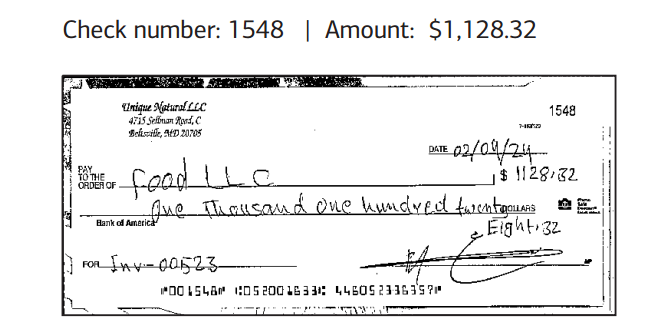 Check number: 1548 | Amount: $1,128.32
Unique Natural LLC
4715 Sellman Road, C
Beltsville, MD 20705
1548
DATE 02/09/24
PAY TO THE ORDER OF Food LLC $ 1128.32
One Thousand One hundred twenty DOLLARS
Eight. 32
Bank of America
FOR Inv-00523